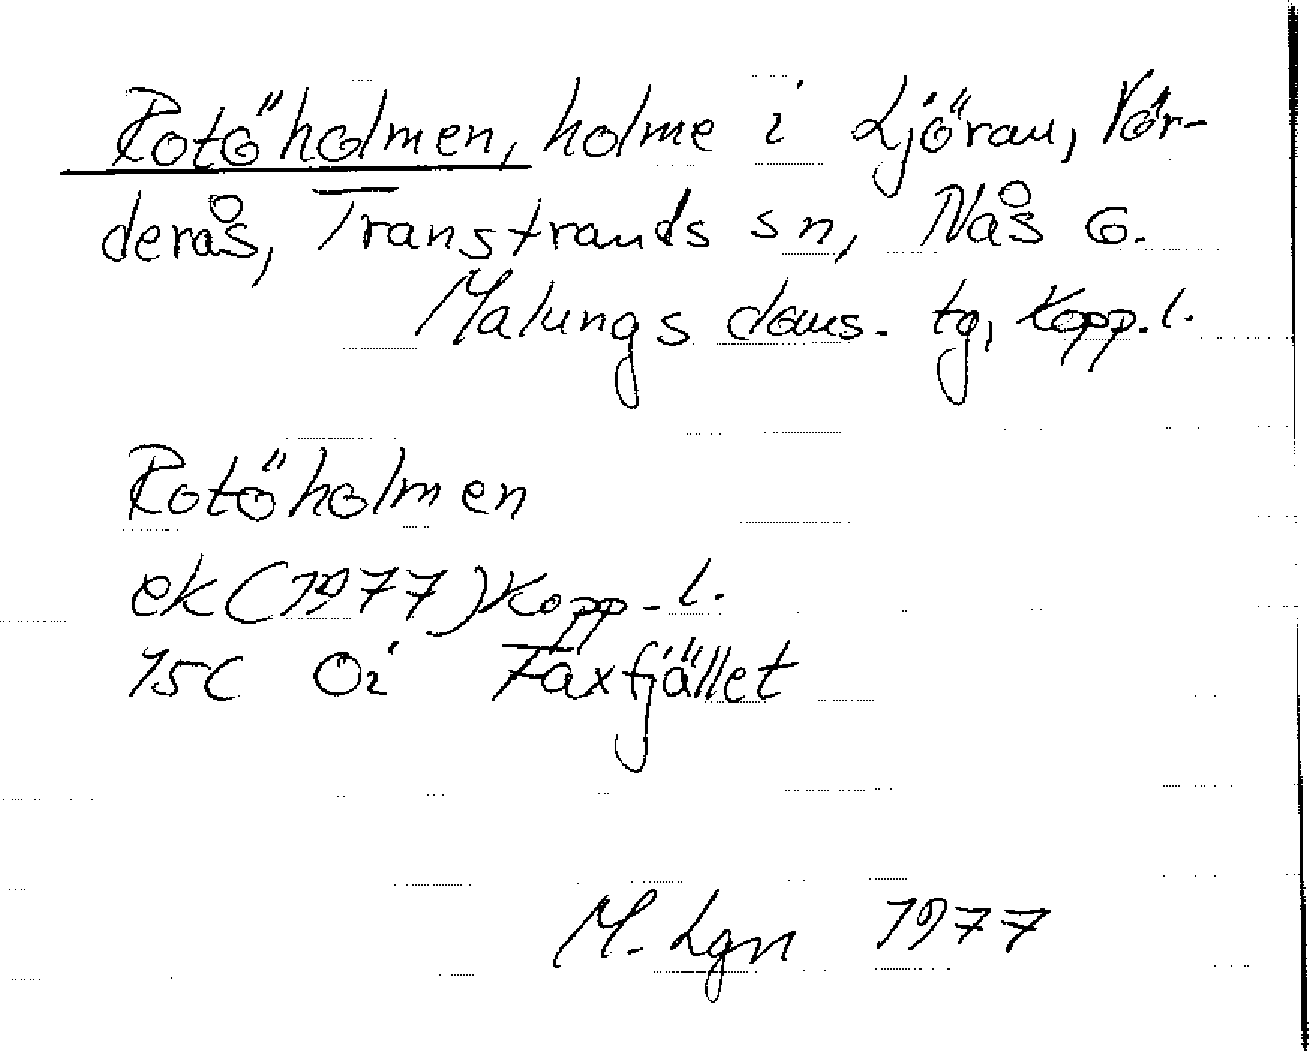 Rotöholmen, holme i Ljöran, Vör-
derås, Transtrands sn, Nås o.
Malungs doms. tg, Kopp. l.
Rotöholmen
ek (1977) Kopp. l.
15C 0i Faxfjället
M. Lgn 1977